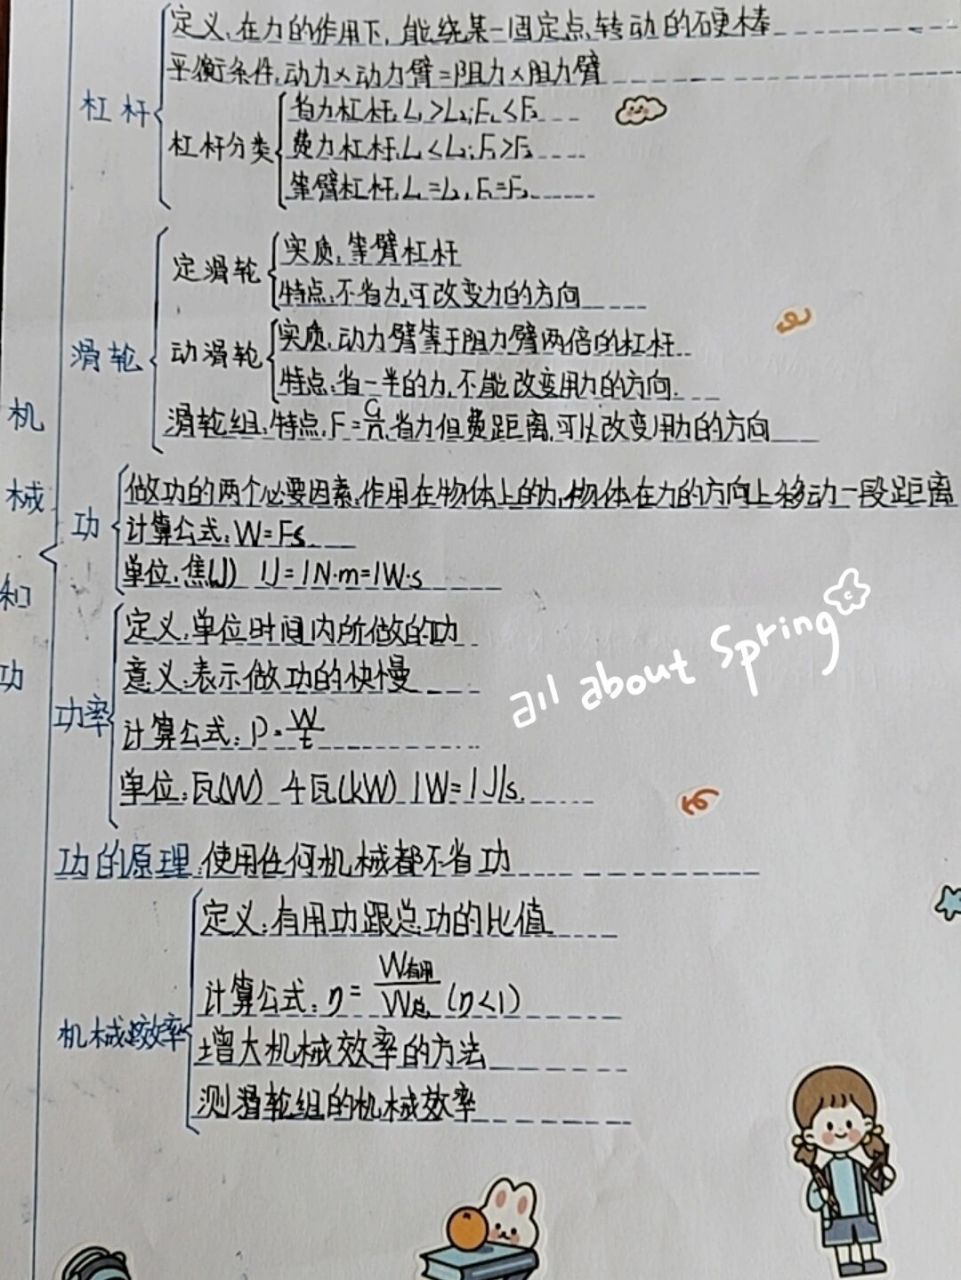 机械和功
杠杆
定义:在力的作用下,能绕某一固定点转动的硬棒
平衡条件:动力×动力臂=阻力×阻力臂
杠杆分类
省力杠杆:L₁>L₂;F₁<F₂
费力杠杆:L₁<L₂;F₁>F₂
等臂杠杆:L₁=L₂,F₁=F₂
滑轮
定滑轮
实质:等臂杠杆
特点:不省力,可改变力的方向
动滑轮
实质:动力臂等于阻力臂两倍的杠杆
特点:省一半的力,不能改变用力的方向.
滑轮组:特点:F=G/n,省力但费距离,可以改变用力的方向
功
做功的两个必要因素:作用在物体上的力,物体在力的方向上移动一段距离
计算公式:W=Fs
单位:焦(J) 1J=1N·m=1W·s
功率
定义:单位时间内所做的功
意义:表示做功的快慢
计算公式:P=W/t
单位:瓦(W) 千瓦(kW) 1W=1J/s.
all about Spring
功的原理:使用任何机械都不省功
机械效率
定义:有用功跟总功的比值
计算公式:η=W有用/W总(η<1)
增大机械效率的方法
测滑轮组的机械效率